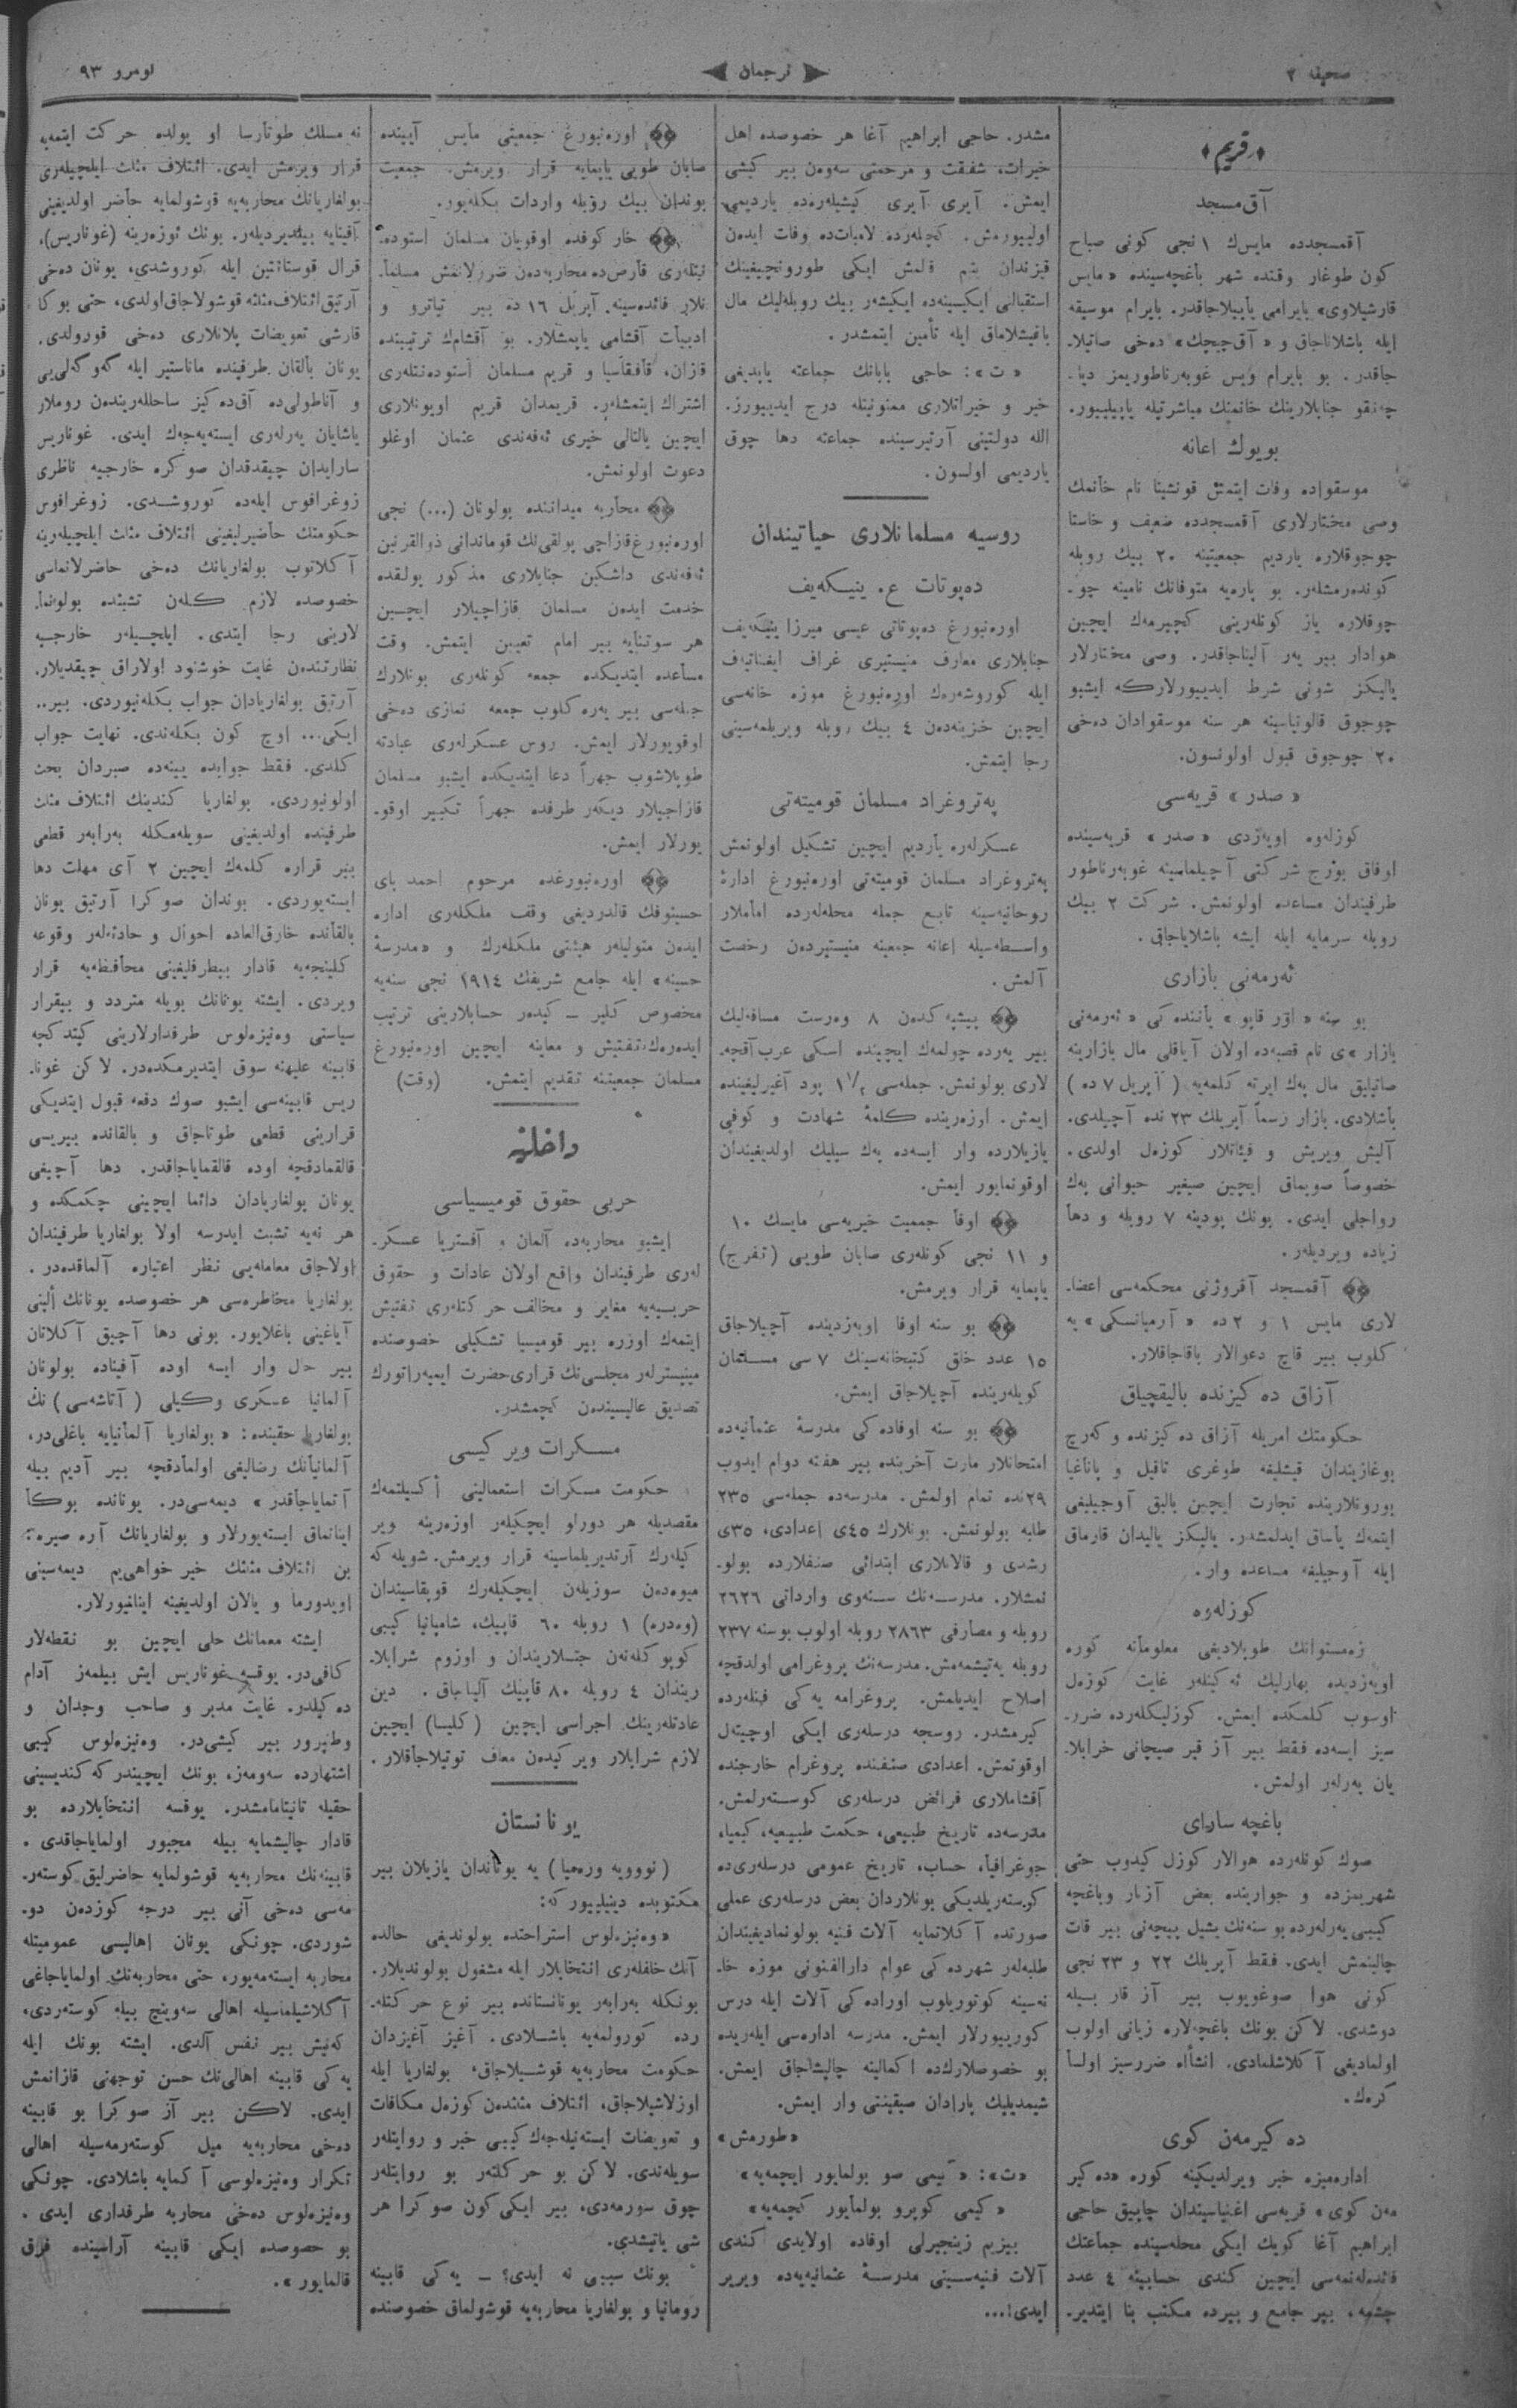 صحیفه ۲
ترجمان
نومرو ۹۳
﴿قریم﴾
آق‌مسجد
آقمسجدده مایس‌ك ۱ نجی كونی صباح
كون طوغار وقتده شهر باغچه‌سینده «مایس
قارشیلاوی» بایرامی یأپیلاجاقدر. بایرام موسیقه
ایله باشلاناجاق و «آق‌چیچك» ده‌خی صاتیلا-
جاقدر. بو بایرام ویس غوبه‌رناطوریمز دیا-
چه‌نقو جنابلارینك خانمنك مباشرتیله یاپیلییور.
بویوك اعانه
موسقواده وفات ایتمش قونشینا نام خأنمك
وصی مختارلاری آقمسجدده ضعیف و خاستا
چوجوقلاره یاردیم جمعیتینه ۲۰ بیك روبله
كونده‌رمشله‌ر. بو پاره‌یه متوفانك نامینه چو-
چوقلاره یاز كونله‌رینی كچیرمه‌ك ایچین
هوادار بیر یه‌ر آلیناجاقدر. وصی مختارلار
یالیكز شونی شرط ایدییورلاركه ایشبو
چوجوق قالونیاسینه هر سنه موسقوادان ده‌خی
۲۰ چوجوق قبول اولونسون.
«صدر» قریه‌سی
كوزله‌وه اویه‌زدی «صدر» قریه‌سینده
اوفاق بورج شركتی آچیلماسینه غوبه‌رناطور
طرفیندان مساعده اولونمش. شركت ۲ بیك
روبله سرمایه ایله ایشه باشلایاجاق.
ئه‌رمه‌نی بازاری
بو سنه «اور قاپو» یأننده‌كی «ئه‌رمه‌نی
بازار»ی نام قصبه‌ده اولان آیاقلی مال بازارینه
صاتیلیق مال پك ایرته كلمه‌یه (آپریل ۷ ده)
بأشلادی. بازار رسمأ آپریلك ۲۳ نده آچیلدی.
آلیش ویریش و فیئاتلار كوزه‌ل اولدی.
خصوصأ صویماق ایچین صیغیر حیوانی پك
رواجلی ایدی. بونك پودینه ۷ روبله و دهأ
زیاده ویردیله‌ر.
آقمسجد آقروژنی محكمه‌سی اعضا-
لاری مایس ۱ و ۲ ده «آرمیانسكی» یه
كلوب بیر قاچ دعوالار باقاجاقلار.
آزاق ده‌كیزنده بالیقچیلق
حكومتك امریله آزاق ده‌كیزنده و كه‌رچ
بوغازیندان قیشلیغه طوغری تاقیل و پانأغیا
بورونلارینده تجارت ایچین بالیق آوجیلیغی
ایتمه‌ك یأساق ایدلمشدر. یالیكز یالیدان قارماق
ایله آوجیلیغه مساعده وار.
كوزله‌وه
زه‌مستوانك طوپلادیغی معلوماته كوره
اویه‌زدیده بهارلیك ئه‌كینله‌ر غایت كوزه‌ل
اوسوب كلمكده ایمش. كوزلیكله‌رده ضرر-
سیز ایسه‌ده فقط بیر آز قیر صیچانی خرابلا-
یان یه‌رله‌ر اولمش.
باغچه سارای
صوك كونله‌رده هوالار كوزل كیدوب حتی
شهریمزده و جوارینده بعض آزبار وباغچه
كیبی یه‌رله‌رده بو سنه‌نك یشیل پیچه‌نی بیر قات
چالینمش ایدی. فقط آپریلك ۲۲ و ۲۳ نجی
كونی هوا صوغویوب بیر آز قار بیله
دوشدی. لاكن بونك باغچه‌لاره زیانی اولوب
اولمادیغی آكلاشلمادی. انشأاه ضررسیز اولسأ
كره‌ك.
ده‌كیرمه‌ن كوی
اداره‌میزه خبر ویرلدیكینه كوره «ده‌كیر
مه‌ن كوی» قریه‌سی اغنیاسیندان چاپیق حاجی
ابراهیم آغا كویك ایكی محله‌سینده جماعتك
فائده‌له‌نمه‌سی ایچین كندی حسابینه ٤ عدد
چشمه، بیر جامع و بیرده مكتب بنا ایتدیر-
مشدر. حاجی ابراهیم آغا هر خصوصده اهل
خیرات، شفقت و مرحمتی سه‌وه‌ن بیر كیشی
ایمش. آیری آیری كیشیله‌ره‌ده یاردیمی
اولییورمش. كچله‌رده لامبات‌ده وفات ایده‌ن
قیزندان یتیم قلمش ایكی طورونچیغینك
استقبالی ایكیسینه‌ده ایكیشه‌ر بیك روبله‌لیك مال
باغیشلاماق ایله تأمین ایتمشدر.
«ت»: حاجی بابانك جماعته یاپدیغی
خیر و خیراتلاری ممنونیتله درج ایدییورز.
الله دولتینی آرتیرسینده جماعته دها چوق
یاردیمی اولسون.
روسیه مسلمانلاری حیاتیندان
ده‌پوتات ع. ینیكه‌یف
اوره‌نبورغ ده‌پوتاتی عیسی میرزا ینیكه‌یف
جنابلاری معارف منیستیری غراف ایغناتیه‌ف
ایله كوروشه‌ره‌ك اوره‌نبورغ موزه خانه‌سی
ایچین خزینه‌ده‌ن ٤ بیك روبله ویریلمه‌سینی
رجا ایتمش.
په‌تروغراد مسلمان قومیته‌تی
عسكرله‌ره یأردیم ایچین تشكیل اولونمش
په‌تروغراد مسلمان قومیته‌تی اوره‌نبورغ ادارۀ
روحانیه‌سینه تابع جمله محله‌له‌رده امأملار
واسطه‌سیله اعانه جمعینه منیستیرده‌ن رخصت
آلمش.
بیشبه‌كده‌ن ۸ وه‌رست مسافه‌لیك
بیر یه‌رده چولمه‌ك ایچینده اسكی عرب آقچه-
لاری بولونمش. جمله‌سی ۱½ پود آغیرلیغینده
ایمش. اوزه‌رینده كلمۀ شهادت و كوفی
یازیلارده وار ایسه‌ده پك سیلیك اولدیغیندان
اوقونمایور ایمش.
اوفأ جمعیت خیریه‌سی مایسك ۱۰
و ۱۱ نجی كونله‌ری صابان طویی (تفرج)
یاپمایه قرار ویرمش.
بو سنه اوفا اویه‌زدینده آچیلاجاق
۱۵ عدد خلق كتبخانه‌سینك ۷ سی مسلمان
كویله‌رینده آچیلاجاق ایمش.
بو سنه اوفاده‌كی مدرسۀ عثمأنیه‌ده
امتحانلار مارت آخرینده بیر هفته دوام ایدوب
۲۹نده تمام اولمش. مدرسه‌ده جمله‌سی ۲۳۵
طلبه بولونمش. بونلارك ٤٥ی اعدادی، ۳۵ی
رشدی و قالانلاری ابتدائی صنفلارده بولو-
نمشلار. مدرسه‌نك سنه‌وی وارداتی ۲٦۲٦
روبله و مصارفی ۲۸٦۳ روبله اولوب بوسنه ۲۳۷
روبله یه‌تیشمه‌مش. مدرسه‌نك پروغرامی اولدقچه
اصلاح ایدیلمش. پروغرامه یه‌كی فنله‌رده
كیرمشدر. روسجه درسله‌ری ایكی اوچیته‌ل
اوقوتمش. اعدادی صنفنده پروغرام خارجنده
آقشاملاری فرائض درسله‌ری كوسته‌رلمش.
مدرسه‌ده تاریخ طبیعی، حكمت طبیعیه، كیمیا،
جوغرافیأ، حساب، تاریخ عمومی درسله‌ری‌ده
كوسته‌ریلدیكی بونلاردان بعض درسله‌ری عملی
صورتده آكلاتمایه آلات فنیه بولونمادیغیندان
طلبه‌له‌ر شهرده‌كی عوام دارالفنونی موزه خا-
نه‌سینه كوتوریلوب اوراده‌كی آلات ایله درس
كورییورلار ایمش. مدرسه اداره‌سی ایله‌ریده
بو خصوصلارك‌ده اكمالینه چالیشاجاق ایمش.
شیمدیلیك پارادان صیقینتی وار ایمش.
«طورمش»
«ت»: «كیمی صو بولمایور ایچمه‌یه»
«كیمی كوپرو بولمایور كچمه‌یه»
بیزیم زینجیرلی اوفاده اولایدی كندی
آلات فنیه‌سینی مدرسۀ عثمانیه‌یه‌ده ویریر
ایدی!...
اوره‌نبورغ جمعیتی مأیس آییننده
صابان طویی یاپمایه قرار ویرمش. جمعیت
بوندان بیك روبله واردات بكله‌یور.
خاركوفده اوقویان مسلمان استوده-
نتله‌ری قأرص‌ده محاربه‌ده‌ن ضررلانمش مسلما-
نلار فائده‌سینه آپریل ۱٦ ده بیر تیاترو و
ادبیأت آقشامی یاپمشلار. بو آقشامك ترتیبنده
قازان، قأفقأسیا و قریم مسلمان استوده‌نتله‌ری
اشتراك ایتمشله‌ر. قریمدان قریم اویونلاری
ایچین یالتالی خیری ئه‌فه‌ندی عثمان اوغلو
دعوت اولونمش.
محأربه میداننده بولونان (...) نجی
اوره‌نبورغ قازاچی پولقی‌نك قوماندانی ذوالقرنین
ئه‌فه‌ندی داشكین جنابلاری مذكور پولقده
خدمت ایده‌ن مسلمان قازاچیلار ایچین
هر سوتنیایه بیر امام تعیین ایتمش. وقت
مسأعده ایتدیكده جمعه كونله‌ری بونلارك
جمله‌سی بیر یه‌ره كلوب جمعه نمازی ده‌خی
اوقویورلار ایمش. روس عسكرله‌ری عبادته
طوپلاشوب جهرأ دعا ایتدیكده ایشبو مسلمان
قازاجیلار دیكه‌ر طرفده جهرأ تكبیر اوقو-
یورلار ایمش.
اوره‌نبورغده مرحوم احمد بای
حسینوفك قالدردیغی وقف ملكله‌ری اداره
ایده‌ن متولیله‌ر هیئتی ملكله‌رك و «مدرسۀ
حسینه» ایله جامع شریفك ۱۹۱٤ نجی سنه‌یه
مخصوص كلیر — كیده‌ر حسابلارینی ترتیب
ایده‌ره‌ك تفتیش و معاینه ایچین اوره‌نبورغ
مسلمان جمعیتنه تقدیم ایتمش. (وقت)
داخلیه
حربی حقوق قومیسیاسی
ایشبو محاربه‌ده آلمان و آفستریا عسكر-
له‌ری طرفیندان واقع اولان عادات و حقوق
حربیه‌یه مغایر و مخالف حركتله‌ری تفتیش
ایتمه‌ك اوزره بیر قومیسیا تشكیلی خصوصنده
مینیسترله‌ر مجلسی‌نك قراری حضرت ایمپه‌راتورك
تصدیق عالیسیندن كچمشدر.
مسكرات ویركیسی
حكومت مسكرات استعمالینی أكسیلتمه‌ك
مقصدیله هر دورلو ایچكیله‌ر اوزه‌رینه ویر
كیله‌رك آرتدیریلماسینه قرار ویرمش. شویله كه
میوه‌ده‌ن سوزیله‌ن ایچكیله‌رك قوبقاسیندان
(وه‌دره) ۱ روبله ٦۰ قاپیك، شامپانیا كیبی
كوپوكله‌نه‌ن جنسلاریندان و اوزوم شرابلا-
ریندان ٤ روبله ۸۰ قاپیك آلیناجاق. دین
عادتله‌رینك اجراسی ایچین (كلیسا) ایچین
لازم شرابلار ویركیده‌ن معاف توتیلاجاقلار.
یونانستان
(نووویه وره‌میا) یه یوناندان یازیلان بیر
مكتوبده دینیلییور كه:
«وه‌نیزه‌لوس استراحتده بولوندیغی حالده
آنك خلفله‌ری انتخابلار ایله مشغول بولوندیلار.
بونكله به‌رابه‌ر یونانستانده بیر نوع حركتله-
رده كورولمه‌یه باشلادی. آغیز آغیزدان
حكومت محاربه‌یه قوشیلاجاق، بولغاریا ایله
اوزلاشیلاجاق، ائتلاف مثلثده‌ن كوزه‌ل مكافات
و تعویضات ایسته‌نیله‌جه‌ك كیبی خبر و روایتله‌ر
سویله‌ندی. لاكن بو حركتله‌ر بو روایتله‌ر
چوق سورمه‌دی، بیر ایكی كون صوكرا هر
شی یاتیشدی.
بونك سیبی نه ایدی؟ — یه‌كی قابینه
رومانیا و بولغاریا محاربه‌یه قوشولماق خصوصنده
نه مسلك طوتأرسا او یولده حركت ایتمه‌یه
قرار ویرمش ایدی. ائتلاف مثلث ایلچیله‌ری
بولغاریانك محاربه‌یه قوشولمایه حأضر اولدیغینی
آفینایه بیلدیردیله‌ر. بونك ئوزه‌رینه (غوناریس)،
قرال قوستانتین ایله كوروشدی، یونان ده‌خی
آرتیق ائتلاف مثلثه قوشولاجاق اولدی، حتی بوكا
قارشی تعویضات پلانلاری ده‌خی قورولدی.
یونان بألقان طرفینده ماناستیر ایله گه‌وگه‌لی‌یی
و آناطولی‌ده آق‌ده‌كیز ساحلله‌ریندن روملار
یاشایان یه‌رله‌ری ایسته‌یه‌جه‌ك ایدی. غوناریس
سارایدان چیقدقدان صوكره خارجیه ناظری
زوغرافوس ایله‌ده كوروشدی. زوغرافوس
حكومتك حأضیرلیغینی ائتلاف مثلث ایلچیله‌رینه
آكلاتوب بولغاریانك ده‌خی حاضرلانماسی
خصوصده لازم كله‌ن تشبثده بولونما-
لارینی رجا ایتدی. ایلچیله‌ر خارجیه
نظارتندن غایت خوشنود اولاراق چیقدیلار.
آرتیق بولغاریادان جواب بكله‌نیوردی. بیر..
ایكی... اوچ كون بكله‌ندی. نهایت جواب
كلدی. فقط جوابده یینه‌ده صبردان بحث
اولونیوردی. بولغاریا كندینك ائتلاف مثلث
طرفینده اولدیغینی سویله‌مكله به‌رابه‌ر قطعی
بیر قراره كلمه‌ك ایچین ۲ آی مهلت دها
ایسته‌یوردی. بوندان صوكرا آرتیق یونان
بالقأنده خارق‌العاده احوال و حادثه‌له‌ر وقوعه
كلینجه‌یه قادار بیطرفلیغینی محأفظه‌یه قرار
ویردی. ایشته یونانك بویله متردد و بیقرار
سیاستی وه‌نیزه‌لوس طرفدارلارینی كیتدكچه
قابینه علیهنه سوق ایتدیرمكده‌در. لاكن غونا-
ریس قابینه‌سی ایشبو صوك دفعه قبول ایتدیكی
قرارینی قطعی طوتاجاق و بالقانده بیریسی
قالقمادقچه اوده قالقمایاجاقدر. دها آچیغی
یونان بولغاریادان دائما ایچینی چكمكده و
هر نه‌یه تشبث ایدرسه اولا بولغاریا طرفیندان
اولاجاق معامله‌یی نظر اعتباره آلماقده‌در.
بولغاریا مخاطره‌سی هر خصوصده یونانك ألینی
آیاغینی باغلایور. بونی دها آچیق آكلاتان
بیر حال وار ایسه اوده آفیناده بولونان
آلمانیا عسكری وكیلی (آتاشه‌سی) نك
بولغاریا حقینده: «بولغاریا آلمأنیایه باغلی‌در،
آلمانیأنك رضالیغی اولمأدقچه بیر آدیم بیله
آتمایاجأقدر» دیمه‌سی‌در. یونانده بوكأ
اینانماق ایسته‌یورلار و بولغاریانك آره صیره:
بن ائتلاف مثلثك خیر خواهی‌یم دیمه‌سینی
اویدورما و یالان اولدیغینه اینانیورلار.
ایشته معمانك حلی ایچین بو نقطه‌لار
كافی‌در. یوقسه غوناریس ایش بیلمه‌ز آدام
ده‌كیلدر. غایت مدبر و صاحب وجدان و
وطنپرور بیر كیشی‌در. وه‌نیزه‌لوس كیبی
اشتهارده سه‌ومه‌ز، بونك ایچیندر كه كندیسینی
حقیله تانیتامامشدر. یوقسه انتخابلارده بو
قادار چالیشمایه بیله مجبور اولمایاجاقدی.
قابینه‌نك محاربه‌یه قوشولمایه حاضرلیق كوسته‌ر-
مه‌سی ده‌خی آنی بیر درجه كوزده‌ن دو-
شوردی. چونكی یونان اهالیسی عمومیتله
محاربه ایسته‌مه‌یور، حتی محاربه‌نك اولمایاجاغی
آكلاشیلماسیله اهالی سه‌وینج بیله كوسته‌ردی،
كه‌نیش بیر نفس آلدی. ایشته بونك ایله
یه‌كی قابینه اهالی‌نك حسن توجهنی قازانمش
ایدی. لاكن بیر آز صوكرا بو قابینه
ده‌خی محاربه‌یه میل كوسته‌رمه‌سیله اهالی
تكرار وه‌نیزه‌لوسی آكمایه باشلادی. چونكی
وه‌نیزه‌لوس ده‌خی محاربه طرفداری ایدی.
بو خصوصده ایكی قابینه آراسینده فرق
قالمایور».